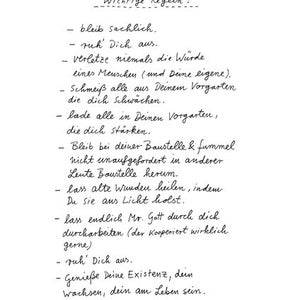 Wichtige Regeln:
– bleib sachlich.
– ruh' Dich aus.
– verletze niemals die Würde
eines Menschen (und Deine eigene).
– Schmeiß alle aus Deinem Vorgarten
die dich schwächen.
– lade alle in Deinen Vorgarten,
die dich stärken.
– Bleib bei deiner Baustelle & fummel
nicht unaufgefordert in anderer
Leute Baustelle herum.
– lass alte Wunden heilen, indem
Du sie ans Licht holst.
– lass endlich Mr. Gott durch dich
durcharbeiten (der kooperiert wirklich
gerne)
– ruh' Dich aus.
– Genieße Deine Existenz, dein
Wachsen, dein am Leben sein.